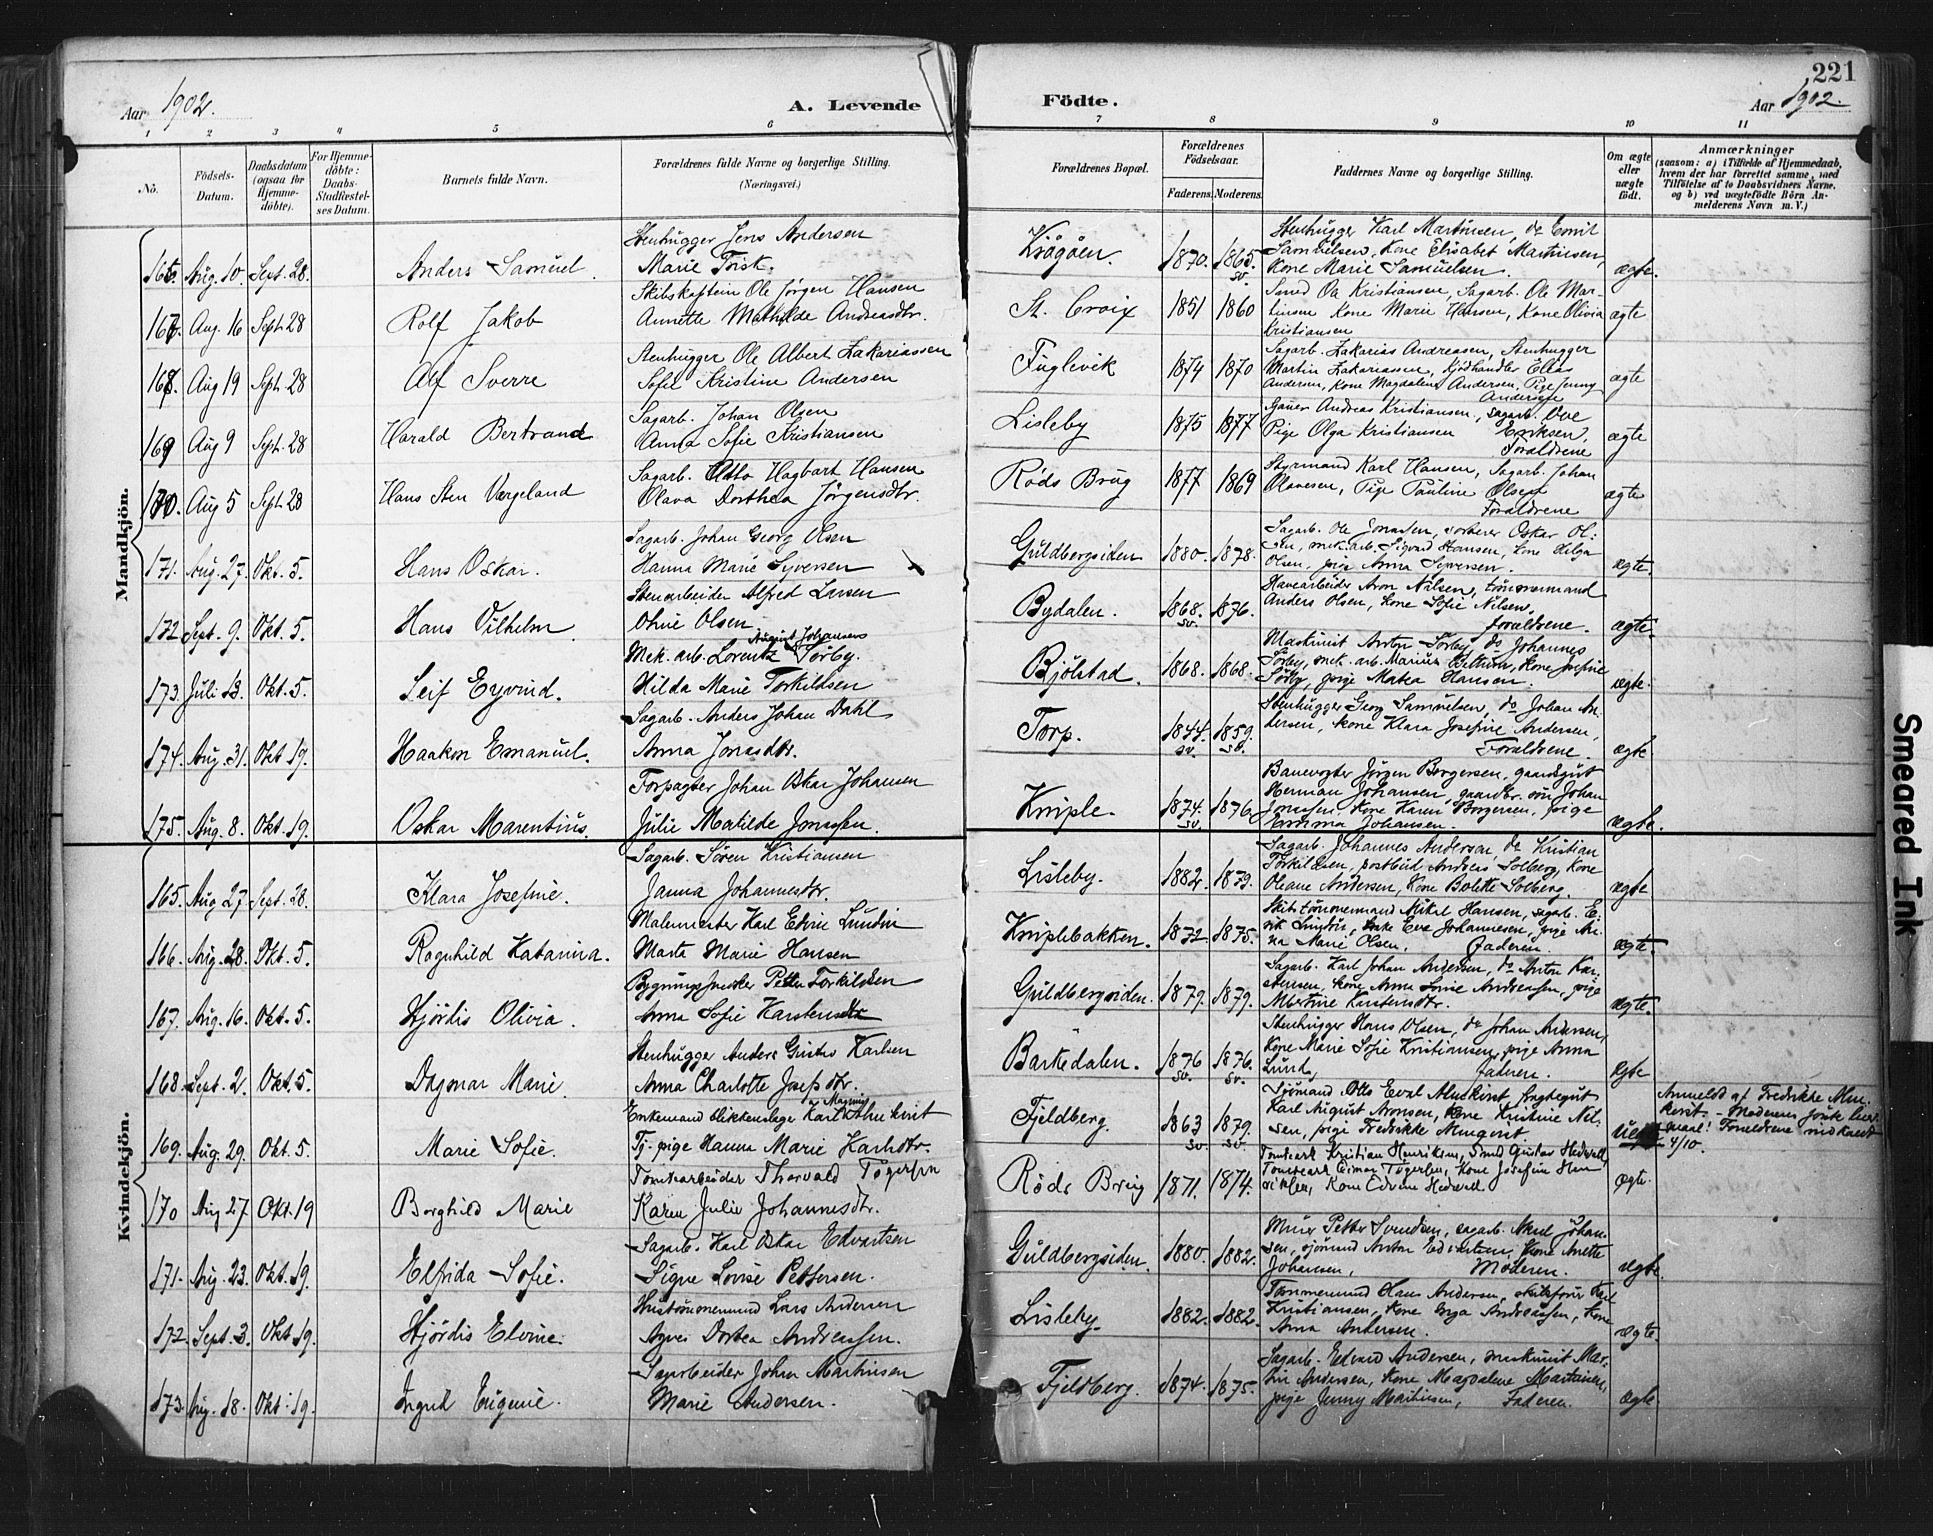 221
Aar 1902.
A. Levende
Födte.
Aar 1902.
1 2 3 4 5 6 7 8 9 10 11
No.
Födsels-Datum.
Daabsdatum (ogsaa for Hjemme-döbte).
For Hjemme-döbte: Daabs-Stadfæstel-ses Datum.
Barnets fulde Navn.
Forældrenes fulde Navne og borgerlige Stilling. (Næringsvei.)
Forældrenes Bopæl.
Forældrenes Födselsaar.
Faderens. Moderens.
Faddernes Navne og borgerlige Stilling.
Om ægte eller uægte födt.
Anmærkninger
(saasom: a) i Tilfælde af Hjemmedaab, hvem der har forrettet samme, med Tilföielse af to Daabsvidners Navne, og b) ved uægtefödte Börn An-melderens Navn m. V.)
Mandkjön.
Stenhugger Jens Andersen
166. Aug. 10. Sept. 28. Anders Samuel. Marie Trisk. 1870. 1865. sv. ægte.
Stenhugger Karl Martinsen, do Emil
Samuelsen, Kone Elisabet Martinsen,
Kone Marie Samuelsen.
Skibskaptein Ole Jörgen Hansen
167. Aug. 16 Sept. 28 Rolf Jakob Annette Mathilde Andreasdtr. St. Croix 1851 1860 ægte
Smed Ole Kristiansen, Sagarb. Ole Mar-
tinsen Kone Marie Hansen, Kone Olivia
Kristiansen
Stenhugger Ole Albert Zakariassen
168. Aug 19 Sept. 28 Alf Sverre Sofie Kristine Andersen Fuglevik 1874 1870 ægte
Sagarb. Zakarias Andreasen, Stenhugger
Martin Zakariassen, Kjödhandler Elias
Andersen, Kone Magdalene Andersen, Pige Jenny
Andersen
Sagarb. Johan Olsen
169 Aug 9 Sept. 28 Harald Bertrand Anna Sofie Kristiansen Lisleby 1875 1877 ægte
Andreas Kristiansen, Sagarb. Ove
Pige Olga Kristiansen Eriksen,
Forældrene
Sagarb. Otto Hagbart Hansen
170. Aug 5 Sept 28 Hans Sten Vergeland Olava Dorthea Jörgensdtr. Röds Brug 1877 1869 ægte
Styrmand Karl Hansen, Sagarb. Johan
Olavesen, Pige Pauline Olsen
Forældrene
Sagarb. Johan Georg Olsen
171. Aug. 27. Okt. 5. Hans Oskar. Hanna Marie Syversen Guldbergsiden 1880. 1878. ægte.
Sagarb. Ole Jonassen, Oskar Ol-
sen, mek. arb. Sigurd Hansen, kone Helga
Olsen, pige Anna Syversen.
Stenarbeider Alfred Larsen
172 Sept. 9. Okt. 5. Hans Vilhelm Olsen Bydalen. 1868. sv. 1876. ægte.
Havearbeider Aron Nilsen, tömmermand
Anders Olsen, kone Sofie Nilsen,
forældrene.
August Johansens
Mek. arb. Lorentz Sörby.
173. Juli 13. Okt. 5. Leif Eyvind. Hilda Marie Torkildsen Bjölstad. 1868. 1868. ægte.
Maskinist Anton Sörby, do Johannes
Sörby, mek. arb. Marius, Kone Josefine
Sörby, pige Matea Hansen.
Sagarb. Anders Johan Dahl
174. Aug. 31. Okt 19. Haakon Emanuel. Anna Jonasdtr. Torp. 1844. sv. 1859. sv. ægte
Stenhugger Georg Samuelsen, do Johan An-
dersen, kone Klara Josefine Andersen,
Forældrene
Forpagter Johan Oskar Johansen
175. Aug. 8. Okt. 19. Oskar Marentius. Julie Matilde Jonassen. Kniple. 1874. sv. 1876. ægte.
Banevogter Jörgen Borgersen, gaardsgut
Herman Johansen, gaardbr. sön Johan
Jonassen, Kone Karen Borgersen, pige
Johansen.
Kvindekjön.
Sagarb. Sören Kristiansen
165. Aug. 27. Sept. 28. Klara Josefine. Janna Johannesdtr. Lisleby. 1882. 1879. ægte
Sagarb. Johannes Andersen, do Kristian
Torkildsen, postbud Andreas Solberg, Kone
Oleane Andersen, Kone Bolette Solberg.
Malermester Karl Edvin Lundin
166. Aug. 28. Okt. 5. Ragnhild Katarina. Marta Marie Hansen Kniplebakken. 1872. 1875. ægte.
Skibstömmermand Mikal Hansen, sagarb. E-
Eva Johannesen, pige An-
na Marie Olsen. Faderen.
Petter Torkildsen
167. Aug. 16. Okt. 5. Hjördis Olivia. Anna Sofie Karstensdtr Guldbergsiden. 1879. 1879. ægte.
Sagarb. Karl Johan Andersen, do Anton Kar-
stensen, kone Anna Andreassen, pige
Albertine Karstensdtr.
Stenhugger Anders Gustav Karlsen
168. Sept. 2. Okt. 5. Dagmar Marie. Anna Charlotte Josefsdtr. Barkedalen. 1876 sv. 1876. sv. ægte
Stenhugger Hans Olsen, do Johan Andersen,
Kone Marie Sofie Kristiansen, pige Anna
Lund, faderen.
Magnus
Enkemand blikkenslager Karl Almkvist
169. Aug. 29. Okt. 5. Marie Sofie. Tj. pige Hanna Marie Karlsdtr. Fjeldberg. 1863 sv 1879. sv.
Sjömand Otto Almkvist,
Karl August Aronsen, Kone Kristine Nil-
sen, pige Fredrikke Almqvist.
Anmeldt af Fredrikke Alm-
kvist. – Moderens
Forældrene indkaldt
4/10.
Tomtearbeider Thorvald Tögersen
170 Aug 27. Okt. 19 Borghild Marie Karen Julie Johannesdtr. Röds Brug 1871. 1874. ægte.
Tomtearb Kristian Henriksen, Smed Gustav Hedvall,
Tomtearb Einar Tögersen, Kone Josefine Hen
riksen, Kone Edvine Hedvall
Sagarb. Karl Oskar Edvartsen
171. Aug. 23. Okt. 19. Elfrida Sofie. Signe Lovise Pettersen. Guldbergsiden. 1880. 1882. ægte.
Murer Petter Svendsen, sagarb. Aksel Johan-
sen, sjömand Anton Edvartsen, Kone Anette
Johansen, Moderen.
Hustömmermand Lars Andersen
172. Sept. 3. Okt. 19. Hjördis Elvine. Agnes Dortea Andreassen. Lisleby. 1882. 1882. ægte.
Tömmermand Hans Andersen, Karl
Kristiansen, Kone Inga Andreassen, Kone
Anna Andersen.
Sagarbeider Johan Martinsen
173. Aug. 18. Okt. 19. Ingrid Eugenie. Marie Andersen. Fjeldberg. 1874. 1875. ægte.
Sagarb. Edvard Andersen, maskinist Mar-
tin Andersen, Kone Magdalene Martinsen,
pige Jenny Martinsen, Faderen.
Smeared Ink